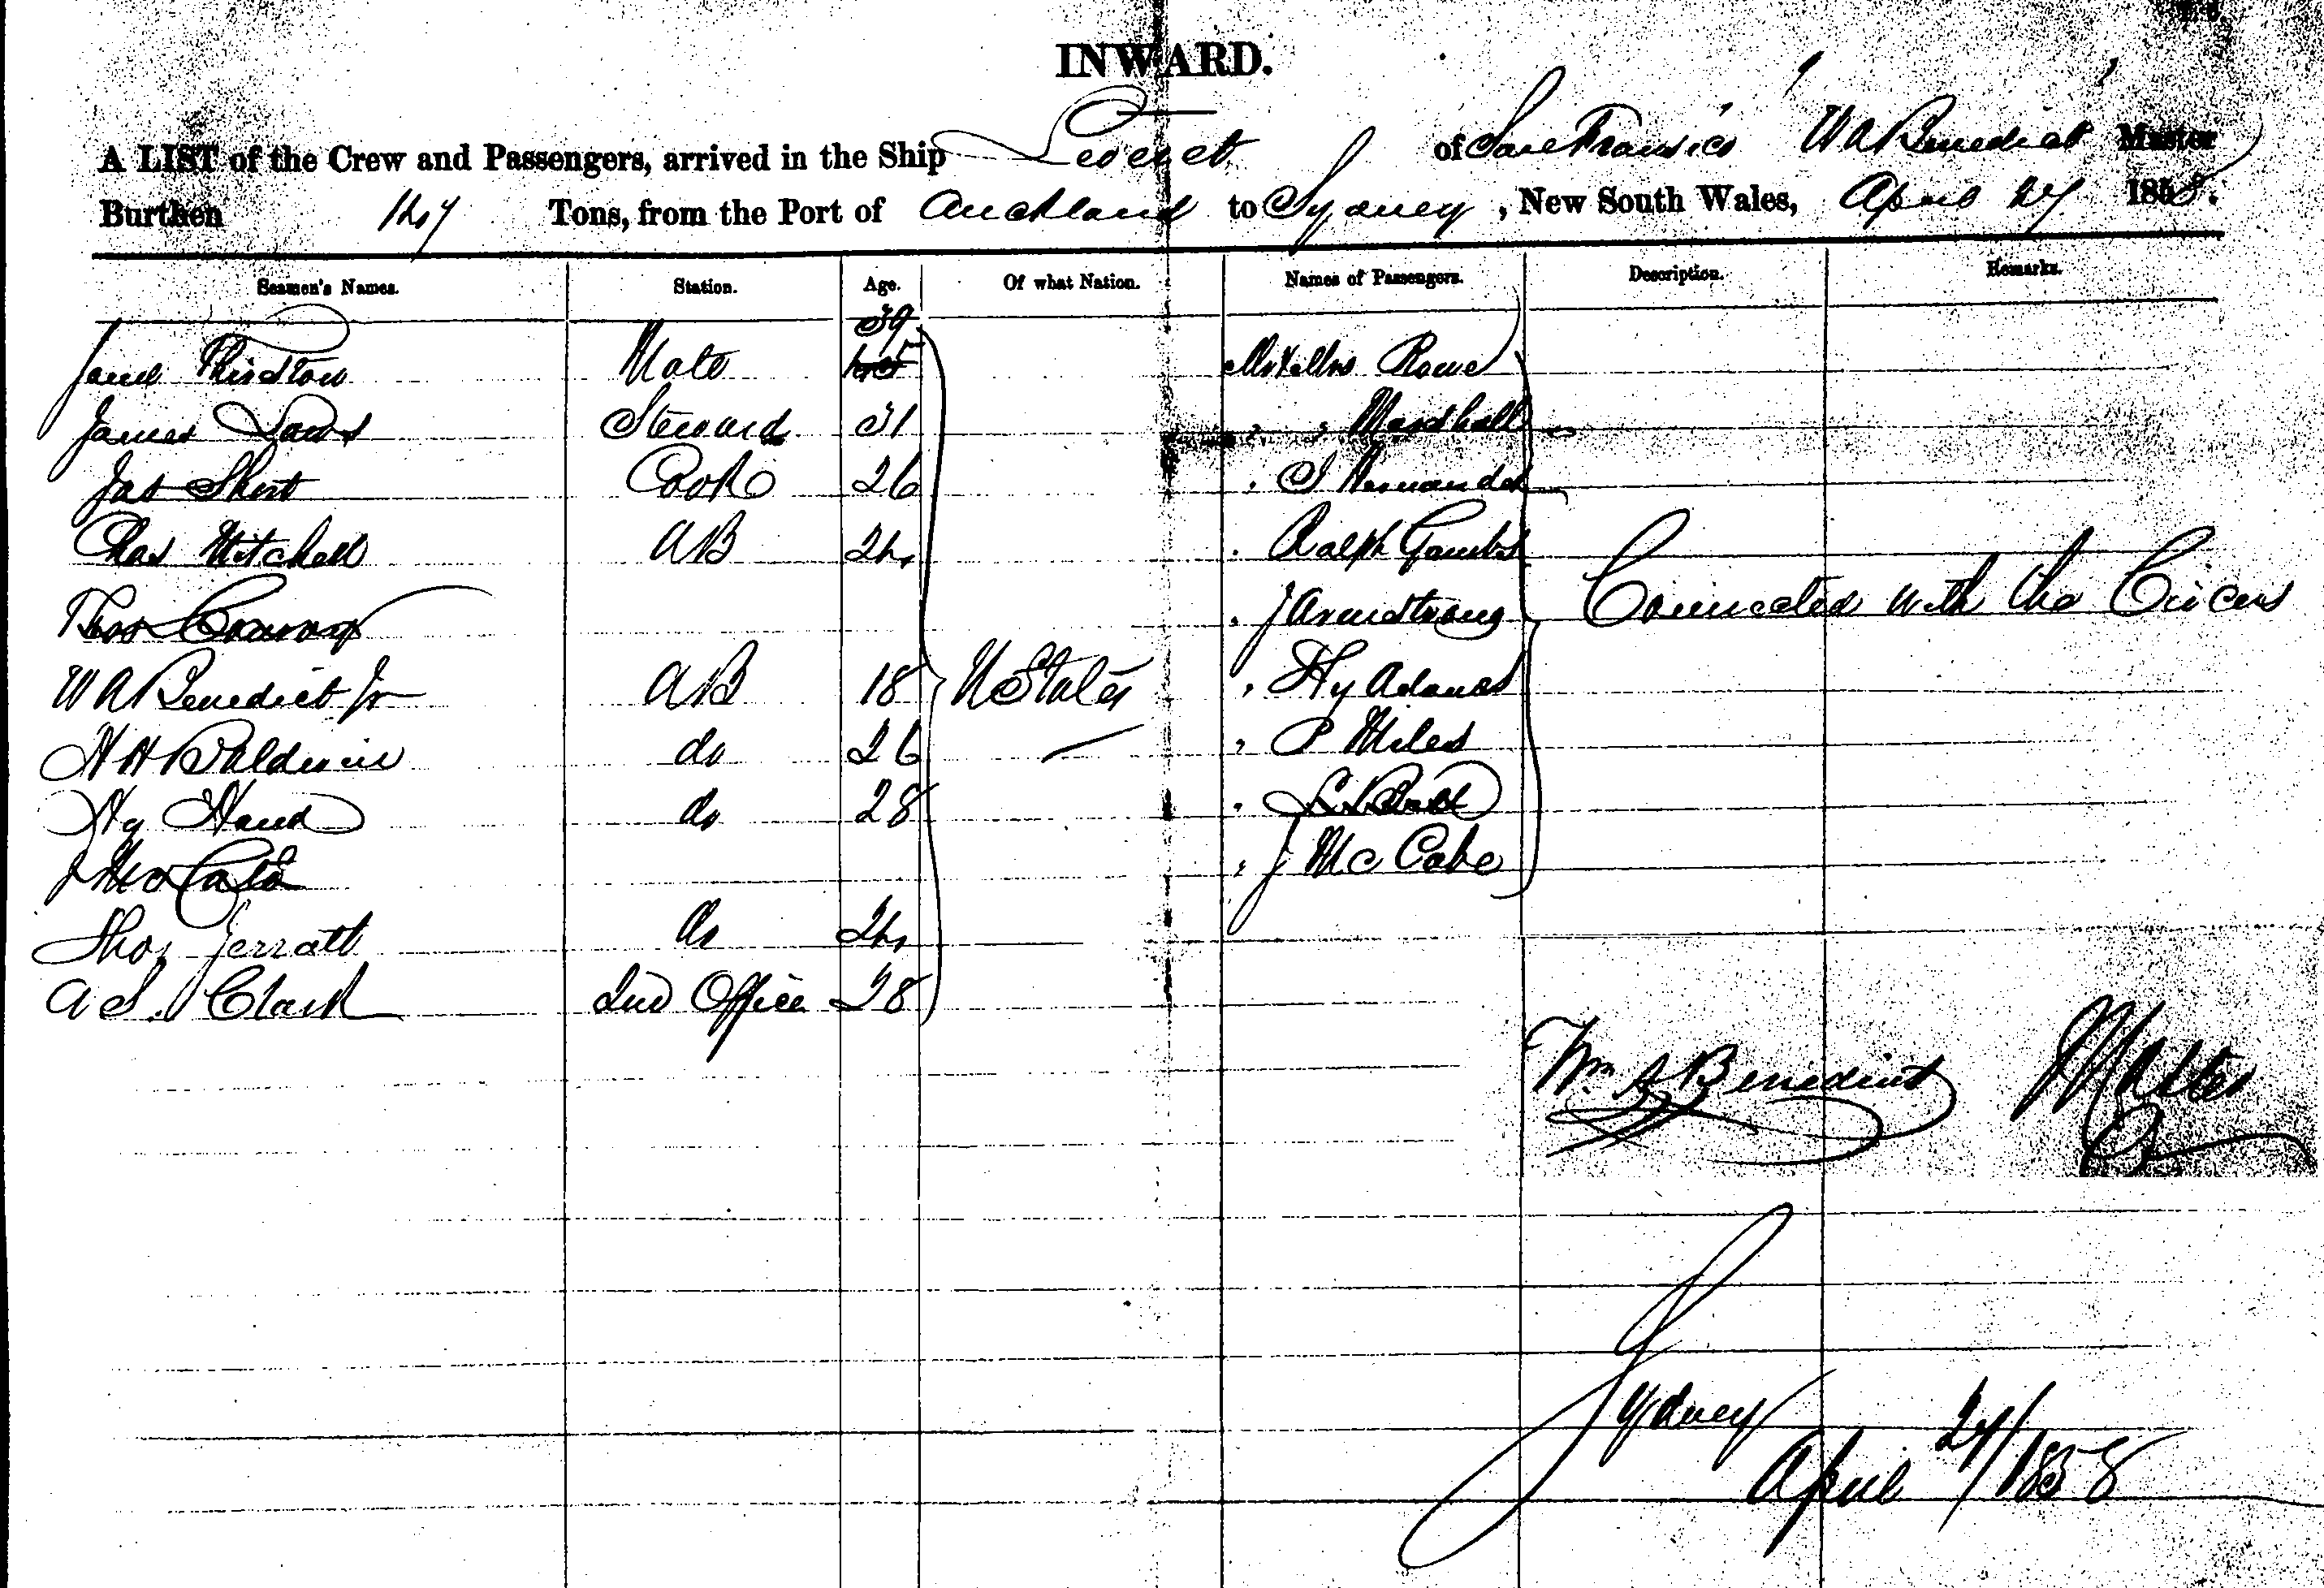 INWARD.
A LIST of the Crew and Passengers, arrived in the Ship Leveret of San Fransico W A Benedict Master
Burthen 147 Tons, from the Port of Auckland to Sydney, New South Wales, April 27 1858.
Seamen's Names. Station. Age. Of what Nation. Names of Passengers. Description. Remarks.
39
Mate Mr & Mrs Rowe
James Steward 31 , , Marshall
Jas Short Cook 26 , S Hernandes
Chas Mitchell AB 24 , Ralph
Thos Conway , J Armstrong Connected with the Circus
W A Benedict Jr AB 18 U States , Hy Adams
H H Baldwin do 26 , P Miles
Hy Hand do 28
, J McCabe
Thos Jerratt do 24
A S. Clark 2nd Officer 28
Wm A Benedict Master
Sydney
April 27/1858